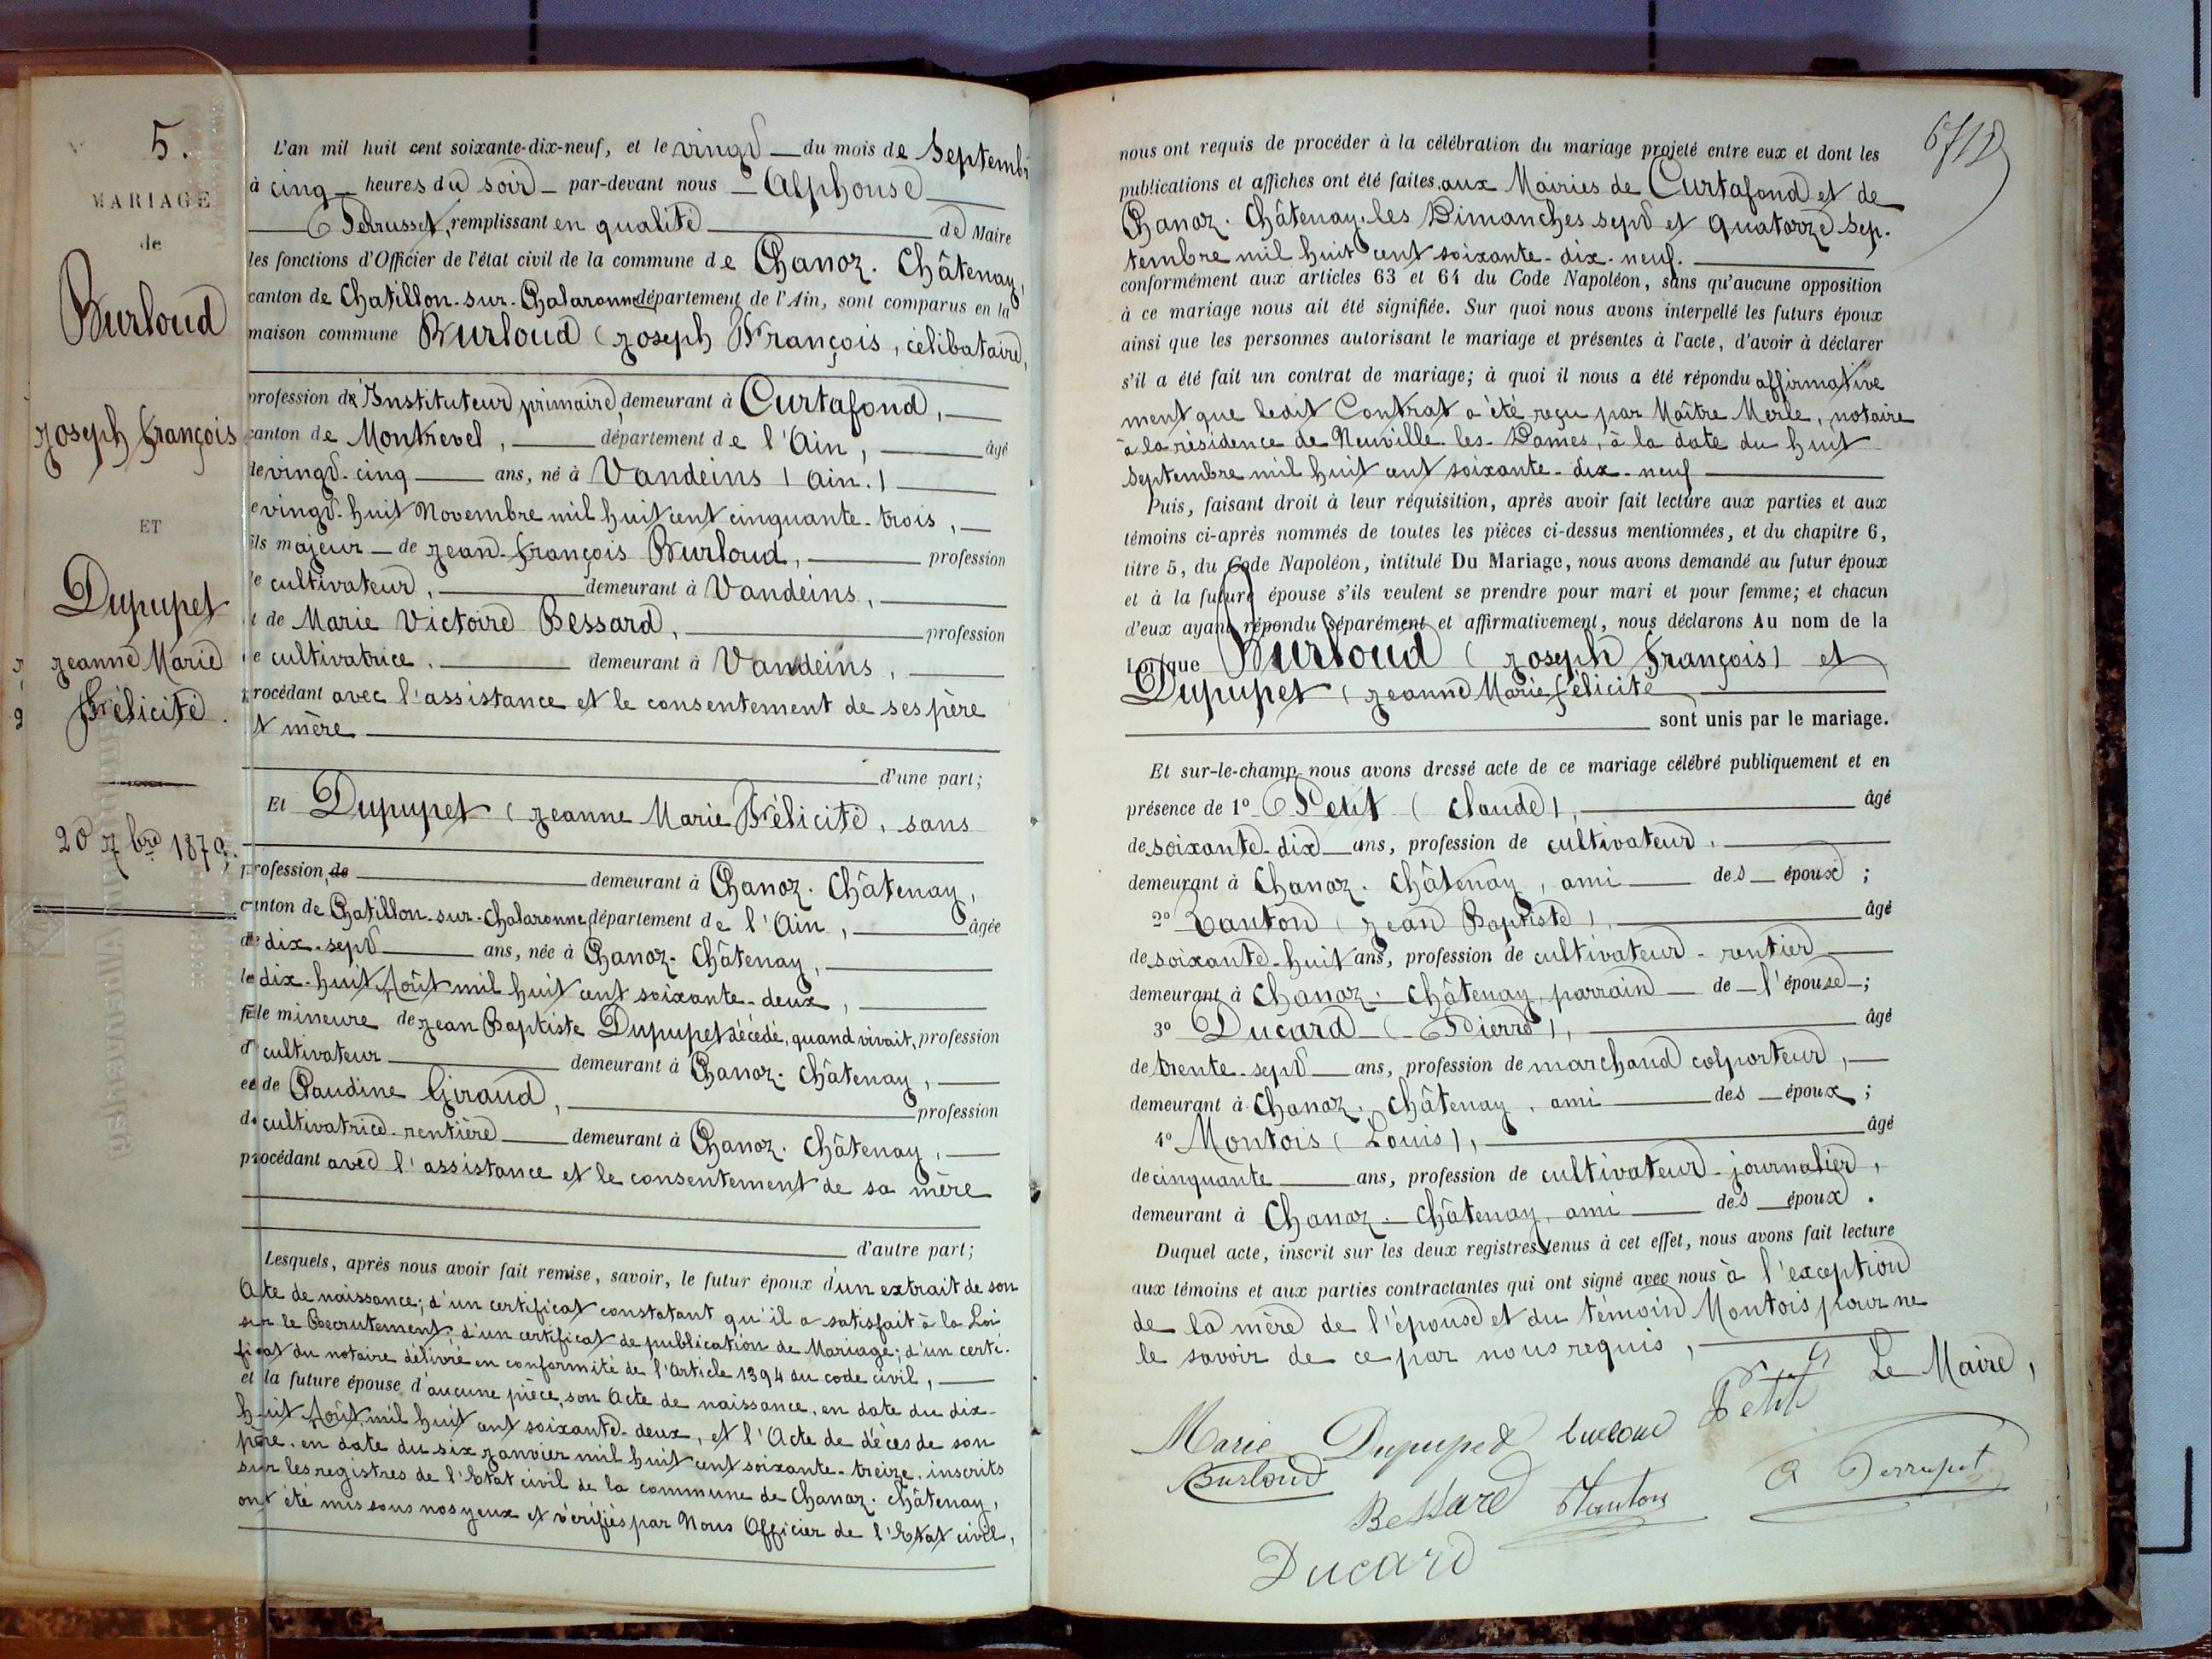 5.
MARIAGE
de
Burloud
Joseph François
ET
Dupupet
Jeanne Marie
Félicité.
20 7bre 1879.
L'an mil huit cent soixante-dix-neuf, et le vingt du mois de Septemb
à cinq heures du soir par-devant nous Alphonse
Perrusset, remplissant en qualité de Maire
les fonctions d'Officier de l'état civil de la commune de Chanoz-Châtenay,
canton de Chatillon-sur-Chalaronne département de l'Ain, sont comparus en la
maison commune Burloud (Joseph François, célibataire,
profession d'Instituteur primaire, demeurant à Curtafond,
canton de Montrevel, département de l'Ain, âgé
de vingt-cinq ans, né à Vandeins (Ain.)
e vingt-huit Novembre mil huit cent cinquante-trois,
ils majeur de Jean-François Burloud, profession
e cultivateur, demeurant à Vandeins,
t de Marie Victoire Bessard, profession
e cultivatrice, demeurant à Vandeins,
procédant avec l'assistance et le consentement de ses père
et mère
d'une part;
Et Dupupet (Jeanne Marie Félicité, sans
profession, de demeurant à Chanoz-Châtenay,
canton de Chatillon-sur-Chalaronne, département de l'Ain, âgée
de dix-sept ans, née à Chanoz-Châtenay,
le dix-huit Août mil huit cent soixante-deux,
fille mineure de Jean Baptiste Dupupet décédé, quand vivait, profession
de cultivateur demeurant à Chanoz-Châtenay,
et de Claudine Giraud, profession
de cultivatrice-rentière demeurant à Chanoz-Châtenay,
procédant avec l'assistance et le consentement de sa mère
d'autre part;
Lesquels, après nous avoir fait remise, savoir, le futur époux d'un extrait de son
Acte de naissance; d'un certificat constatant qu'il a satisfait à la Loi
sur le Recrutement; d'un certificat de publication de Mariage; d'un certi-
ficat du notaire délivré en conformité de l'Article 1394 du code civil,
et la future épouse d'aucune pièce, son Acte de naissance, en date du dix-
huit Août mil huit cent soixante-deux, et l'Acte de décès de son
père, en date du six Janvier mil huit cent soixante-treize, inscrits
sur les registres de l'Etat civil de la commune de Chanoz-Châtenay,
ont été mis sous nos yeux et vérifiés par Nous Officier de l'Etat civil,
nous ont requis de procéder à la célébration du mariage projeté entre eux et dont les
publications et affiches ont été faites, aux Mairies de Curtafond et de
Chanoz-Châtenay, les Dimanches sept et quatorze Sep-
tembre mil huit cent soixante-dix-neuf.
conformément aux articles 63 et 64 du Code Napoléon, sans qu'aucune opposition
à ce mariage nous ait été signifiée. Sur quoi nous avons interpellé les futurs époux
ainsi que les personnes autorisant le mariage et présentes à l'acte, d'avoir à déclarer
s'il a été fait un contrat de mariage; à quoi il nous a été répondu affirmative
ment que ledit Contrat a été reçu par Maître Merle, notaire
à la résidence de Neuville-les-Dames, à la date du huit
Septembre mil huit cent soixante-dix-neuf
Puis, faisant droit à leur réquisition, après avoir fait lecture aux parties et aux
témoins ci-après nommés de toutes les pièces ci-dessus mentionnées, et du chapitre 6,
titre 5, du Code Napoléon, intitulé Du Mariage, nous avons demandé au futur époux
et à la future épouse s'ils veulent se prendre pour mari et pour femme; et chacun
d'eux ayant répondu séparément et affirmativement, nous déclarons Au nom de la
Loi que Burloud (Joseph François) et
Dupupet (Jeanne Marie Félicité
sont unis par le mariage.
Et sur-le-champ nous avons dressé acte de ce mariage célébré publiquement et en
présence de 1o Petit (Claude), âgé
de soixante-dix ans, profession de cultivateur,
demeurant à Chanoz-Châtenay, ami des époux;
2o Tanton (Jean Baptiste), âgé
de soixante-huit ans, profession de cultivateur-rentier
demeurant à Chanoz-Châtenay, parrain de l'épouse;
3o Ducard (Pierre), âgé
de trente-sept ans, profession de marchand colporteur,
demeurant à Chanoz-Châtenay, ami des époux;
4o Montois (Louis), âgé
de cinquante ans, profession de cultivateur-journalier,
demeurant à Chanoz-Châtenay, ami des époux.
Duquel acte, inscrit sur les deux registres tenus à cet effet, nous avons fait lecture
aux témoins et aux parties contractantes qui ont signé avec nous à l'exception
de la mère de l'épouse et du témoin Montois pour ne
le savoir de ce par nous requis,
Le Maire,
Marie Dupupet Burloud Petit
Burloud
Bessard Tanton A Perrusset
Ducard